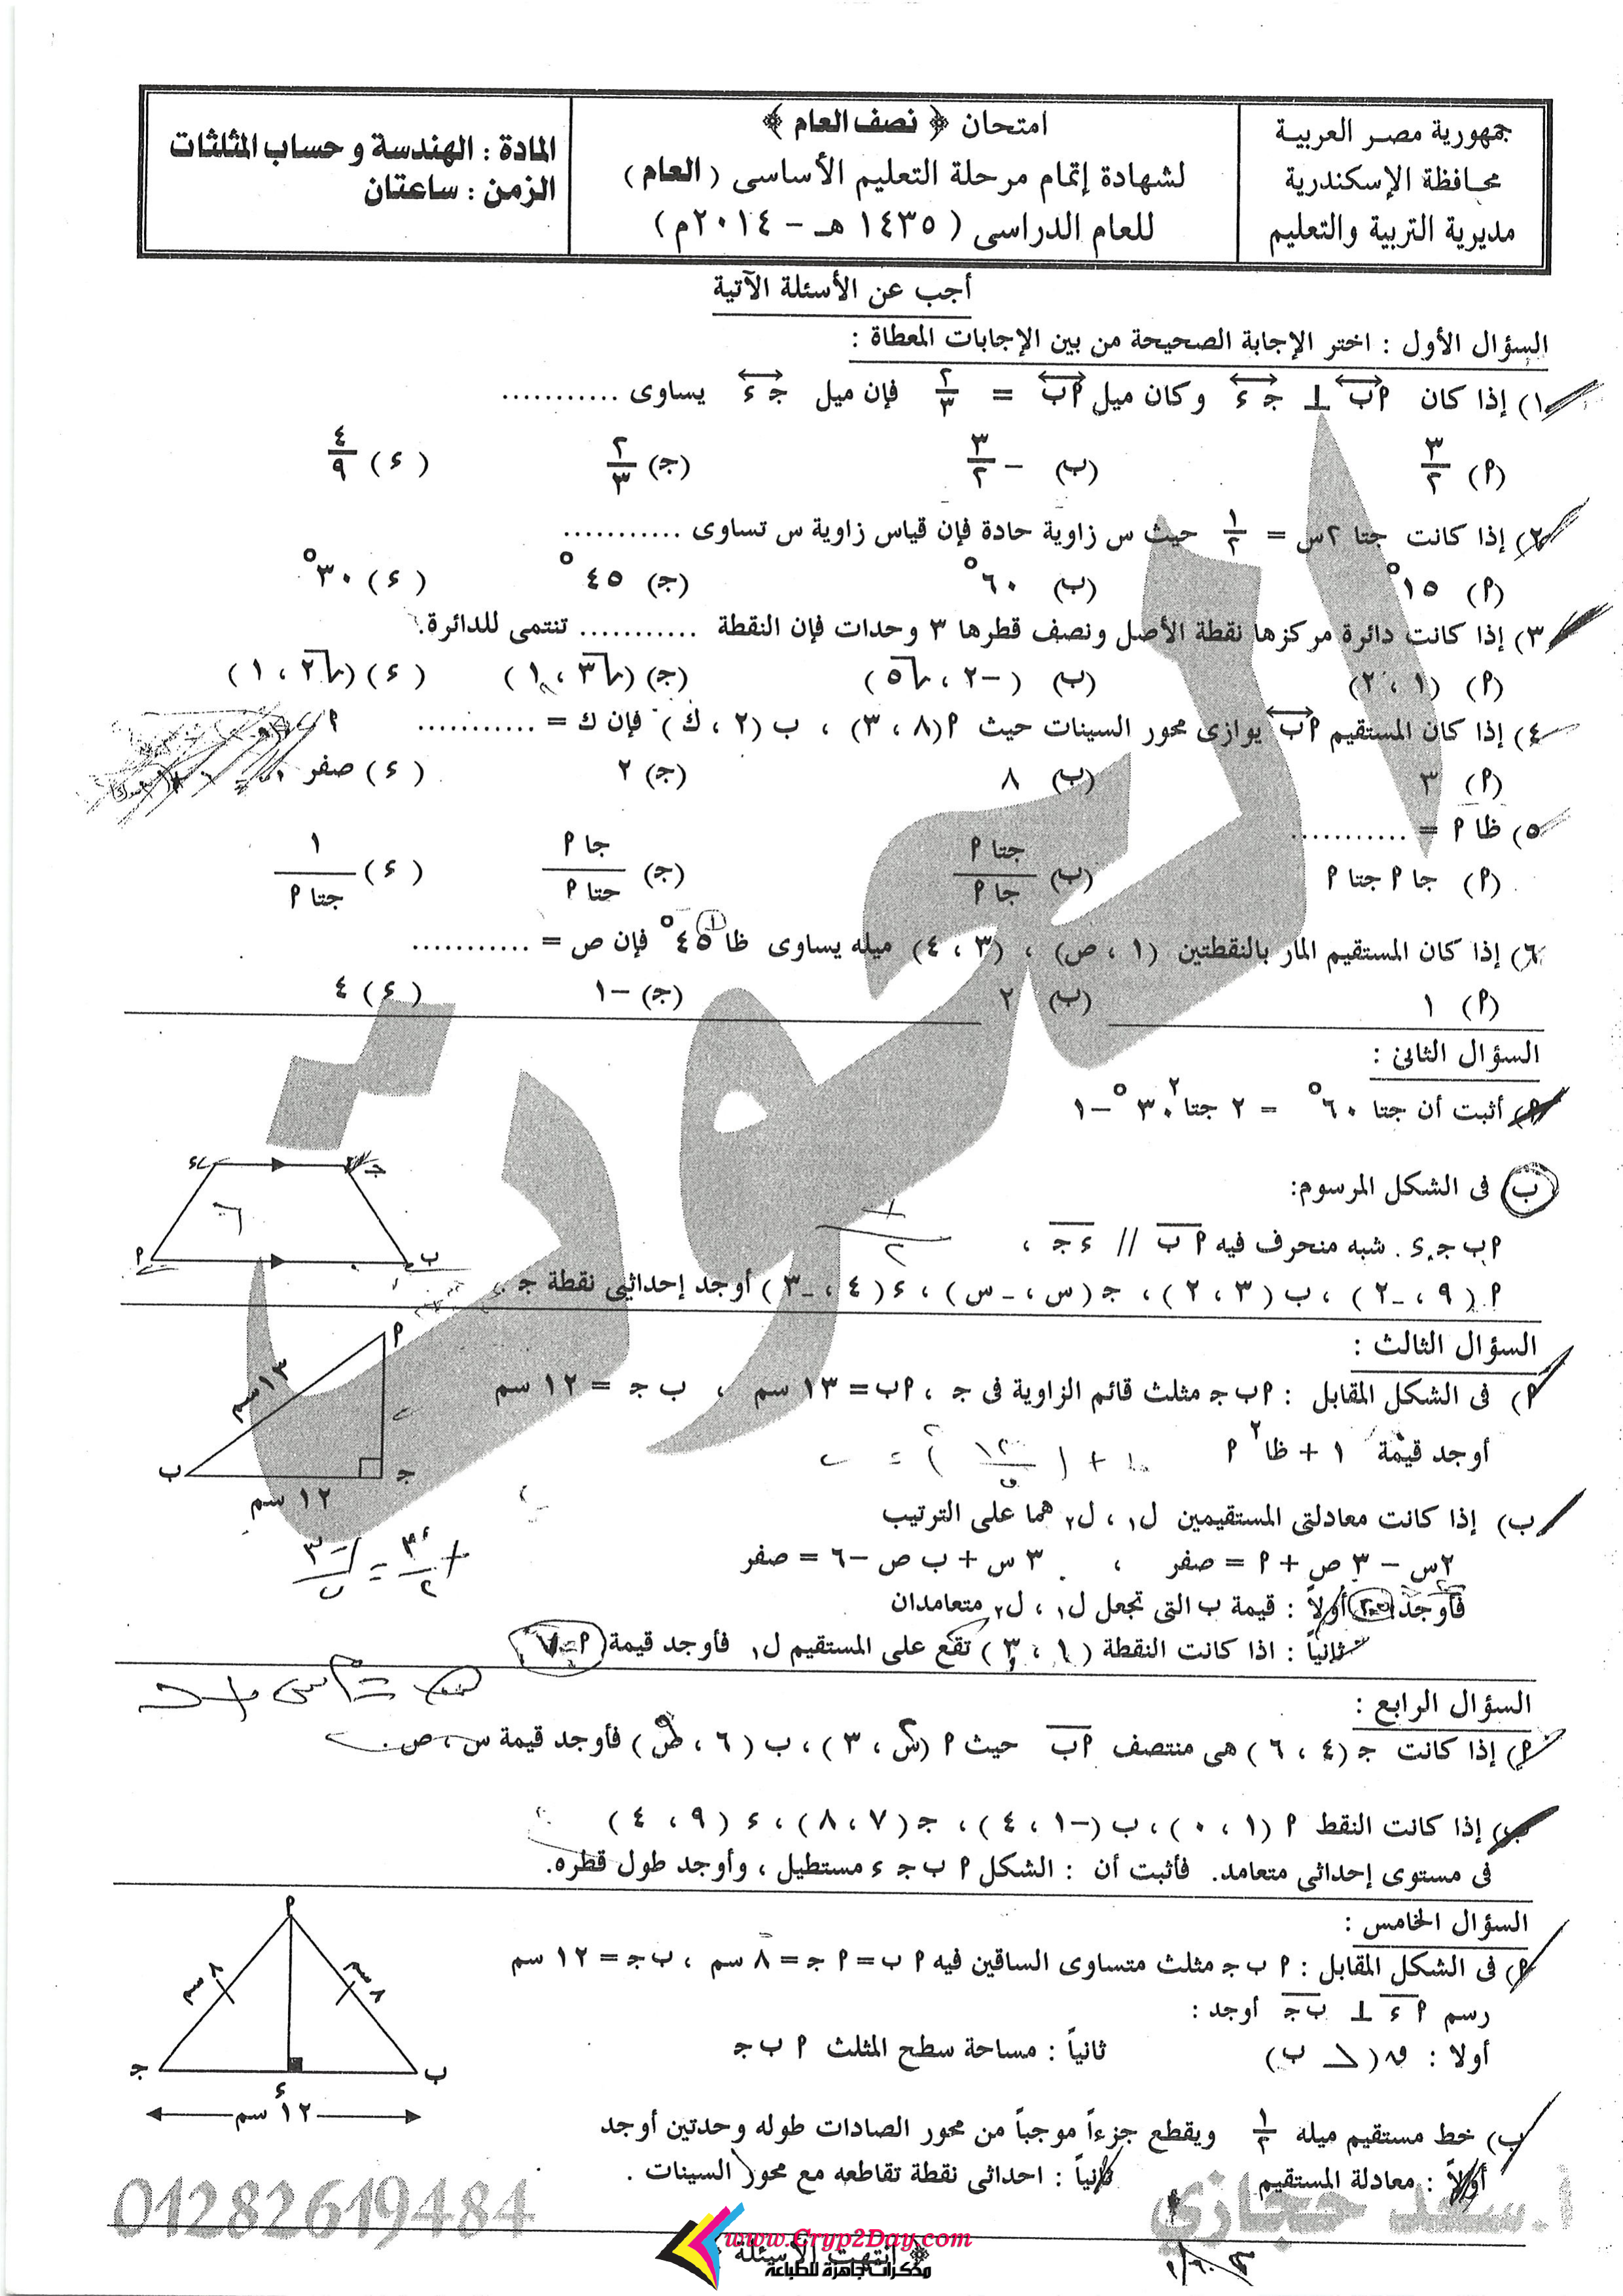 جمهورية مصر العربية
محافظة الإسكندرية
مديرية التربية والتعليم
امتحان ﴿ نصف العام ﴾
لشهادة إتمام مرحلة التعليم الأساسى ( العام )
للعام الدراسى ( ١٤٣٥ هـ – ٢٠١٤م )
المادة : الهندسة و حساب المثلثات
الزمن : ساعتان
أجب عن الأسئلة الآتية
السؤال الأول : اختر الإجابة الصحيحة من بين الإجابات المعطاة :
١) إذا كان أب ⊥ جـ ء وكان ميل أب = ٢/٣ فإن ميل جـ ء يساوى ...........
(أ) ٣/٢ (ب) – ٣/٢ (جـ) ٢/٣ (ء) ٤/٩
٢) إذا كانت جتا ٢س = ١/٢ حيث س زاوية حادة فإن قياس زاوية س تساوى ...........
(أ) ١٥° (ب) ٦٠° (جـ) ٤٥° (ء) ٣٠°
٣) إذا كانت دائرة مركزها نقطة الأصل ونصف قطرها ٣ وحدات فإن النقطة ........... تنتمى للدائرة.
(أ) (١ ، ٢) (ب) (–٢ ، √٥) (جـ) (√٣ ، ١) (ء) (√٢ ، ١)
٤) إذا كان المستقيم أب يوازى محور السينات حيث أ(٨ ، ٣) ، ب (٢ ، ك) فإن ك = ...........
(أ) ٣ (ب) ٨ (جـ) ٢ (ء) صفر
٥) ظا أ = ...........
(أ) جا أ جتا أ (ب) جتا أ/جا أ (جـ) جا أ/جتا أ (ء) ١/جتا أ
٦) إذا كان المستقيم المار بالنقطتين (١ ، ص) ، (٣ ، ٤) ميله يساوى ظا ٤٥° فإن ص = ...........
(أ) ١ (ب) ٢ (جـ) –١ (ء) ٤
السؤال الثانى :
أ) أثبت أن جتا ٦٠° = ٢ جتا²٣٠° –١
ب) فى الشكل المرسوم:
أ ب جـ ء شبه منحرف فيه أ ب // ء جـ ،
أ (٩ ، –٢) ، ب (٣ ، ٢) ، جـ (س ، –س) ، ء (٤ ، –٣) أوجد إحداثيى نقطة جـ .
ء جـ
٦
أ ب
السؤال الثالث :
أ) فى الشكل المقابل : أ ب جـ مثلث قائم الزاوية فى جـ ، أب = ١٣ سم ، ب جـ = ١٢ سم
أوجد قيمة ١ + ظا² أ
أ
١٣سم
ب جـ
١٢ سم
ب) إذا كانت معادلتى المستقيمين ل١ ، ل٢ هما على الترتيب
٢س – ٣ ص + أ = صفر ، ٣ س + ب ص –٦ = صفر
فأوجد أولاً : قيمة ب التى تجعل ل١ ، ل٢ متعامدان
ثانياً : اذا كانت النقطة (١ ، ٣) تقع على المستقيم ل١ فأوجد قيمة أ
السؤال الرابع :
أ) إذا كانت جـ (٤ ، ٦) هى منتصف أب حيث أ (س ، ٣) ، ب (٦ ، ص) فأوجد قيمة س ، ص .
ب) إذا كانت النقط أ (١ ، ٠) ، ب (–١ ، ٤) ، جـ (٧ ، ٨) ، ء (٩ ، ٤)
فى مستوى إحداثى متعامد. فأثبت أن : الشكل أ ب جـ ء مستطيل ، وأوجد طول قطره.
السؤال الخامس :
أ) فى الشكل المقابل : أ ب جـ مثلث متساوى الساقين فيه أ ب = أ جـ = ٨ سم ، ب جـ = ١٢ سم
رسم أ ء ⊥ ب جـ أوجد :
أولا : ق(∠ ب) ثانياً : مساحة سطح المثلث أ ب جـ
أ
٨ سم ٨ سم
جـ ء ب
١٢ سم
ب) خط مستقيم ميله ١/٢ ويقطع جزءاً موجباً من محور الصادات طوله وحدتين أوجد
أولاً : معادلة المستقيم ثانياً : احداثى نقطة تقاطعه مع محور السينات .
أ.سعد حجازي
01282619484
www.Cryp2Day.com
انتهت الأسئلة
مذكرات جاهزة للطباعة